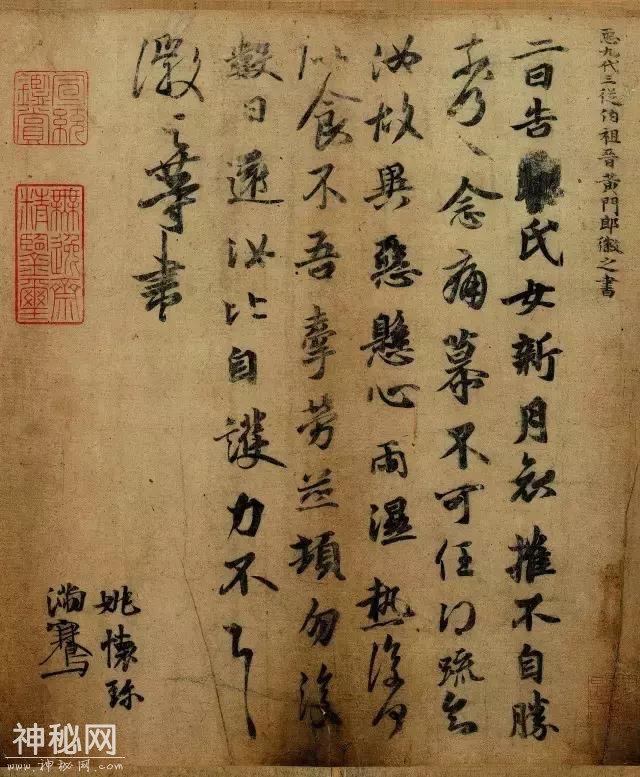 𢘑九代三從伯祖晉黃門郎徽之書
二日告氏女新月哀摧不自勝
奈何奈何念痛慕不可任得疏知
汝故異惡懸心雨濕熱復何
似食不吾牽勞並頓勿復
數日還汝比自護力不具
徽之等書
姚懷珍
滿騫
宣統鑑賞
無逸齋精鑒璽
神秘网
www.神秘网.COM